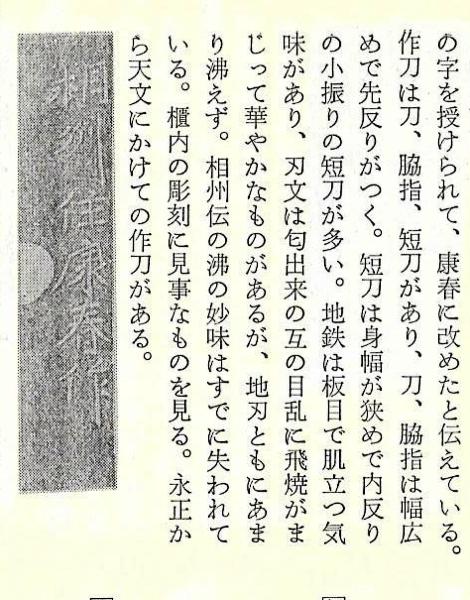 の字を授けられて、康春に改めたと伝えている。
作刀は刀、脇指、短刀があり、刀、脇指は幅広
めで先反りがつく。短刀は身幅が狭めで内反り
の小振りの短刀が多い。地鉄は板目で肌立つ気
味があり、刃文は匂出来の互の目乱に飛焼がま
じって華やかなものがあるが、地刃ともにあま
り沸えず。相州伝の沸の妙味はすでに失われて
いる。櫃内の彫刻に見事なものを見る。永正か
ら天文にかけての作刀がある。
相州住康春作